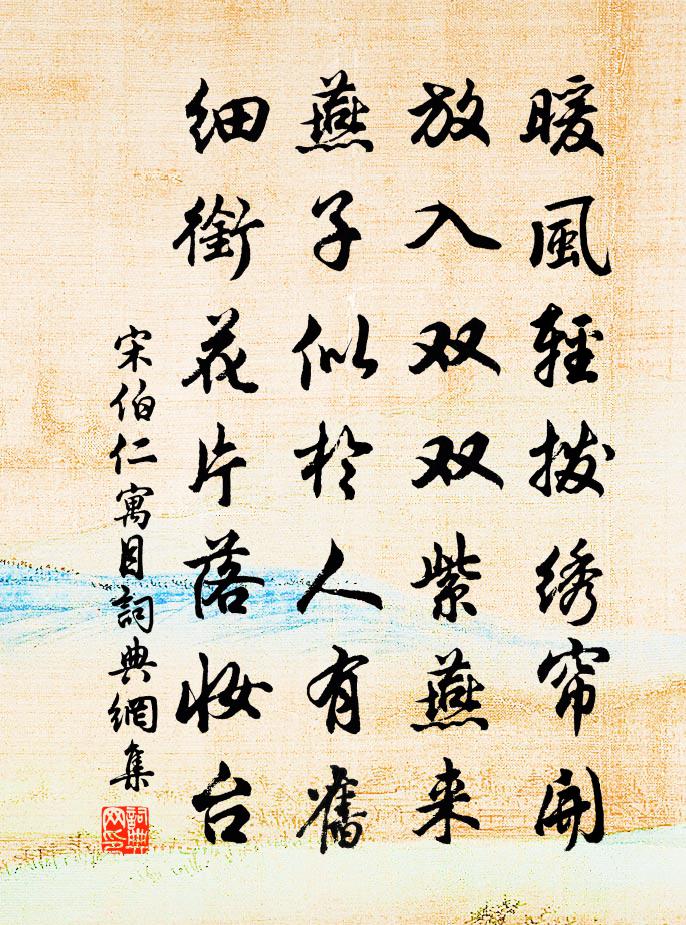 暖風輕撥绣帘開
放入双双紫燕来
燕子似於人有舊
細銜花片落妝台
宋伯仁寓目詞典網集
詞典网印